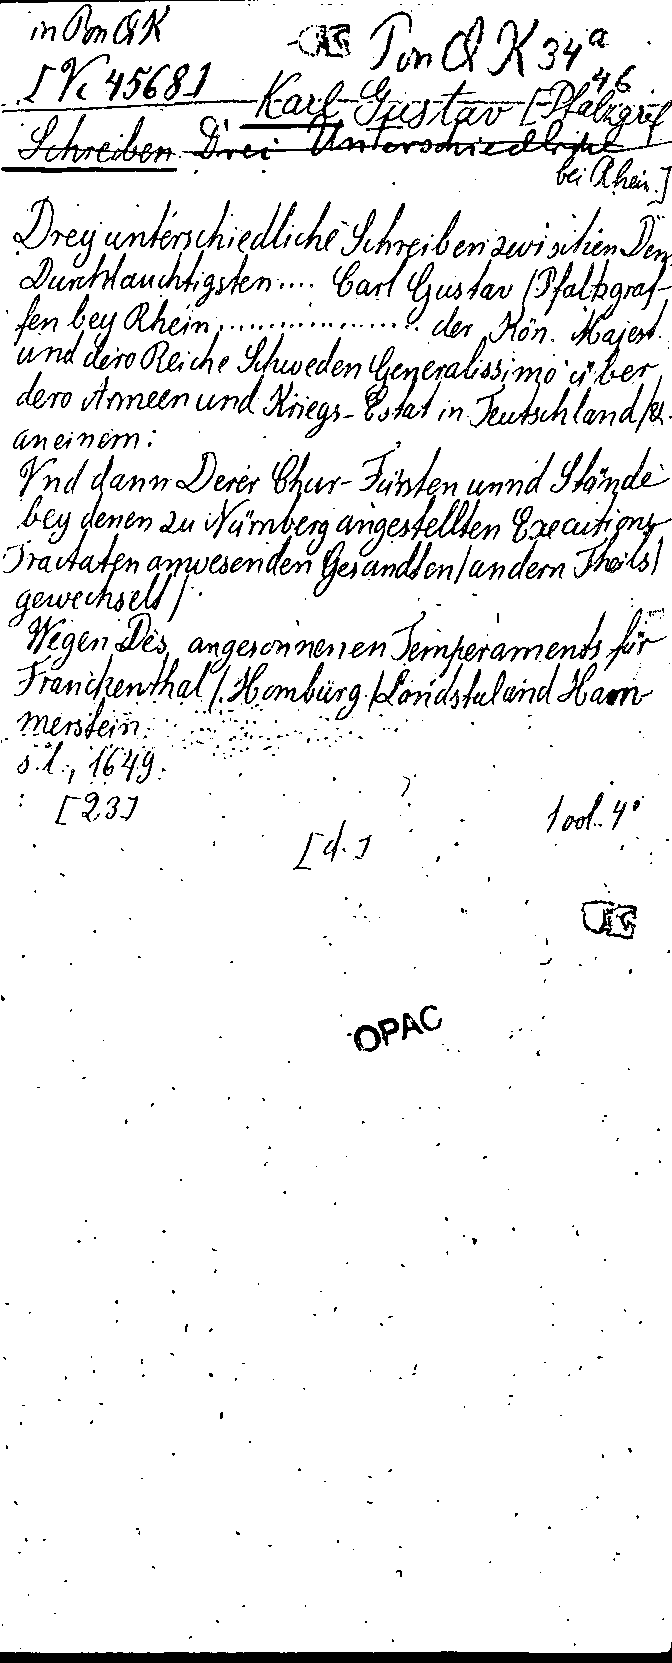 in Pon QK
Pon Q K 34a
[Vc 4568]
46
Karl Gustav [Pfalzgraf
Schreiben Drei Unterschiedliche
bei Rhein.]
Drey unterschiedliche Schreiben zwischen Dem
Durchlauchtigsten.... Carl Gustav / Pfaltzgraf-
fen bey Rhein.................. der Kön. Majest.
und dero Reiche Schweden Generalissimo über
dero Armeen und Kriegs-Estat in Teutschland/
an einem:
Vnd dann Derer Chur-Fürsten unnd Stände
bey denen zu Nürnberg angestellten Executions
Tractaten anwesenden Gesandten/andern Theils/
gewechselt/
Wegen Des angesonnenen Temperaments für
Franckenthal/Homburg/Landstul and Ham
merstein.
s.l., 1649.
[23]
1 ool. 4°
[d.]
OPAC